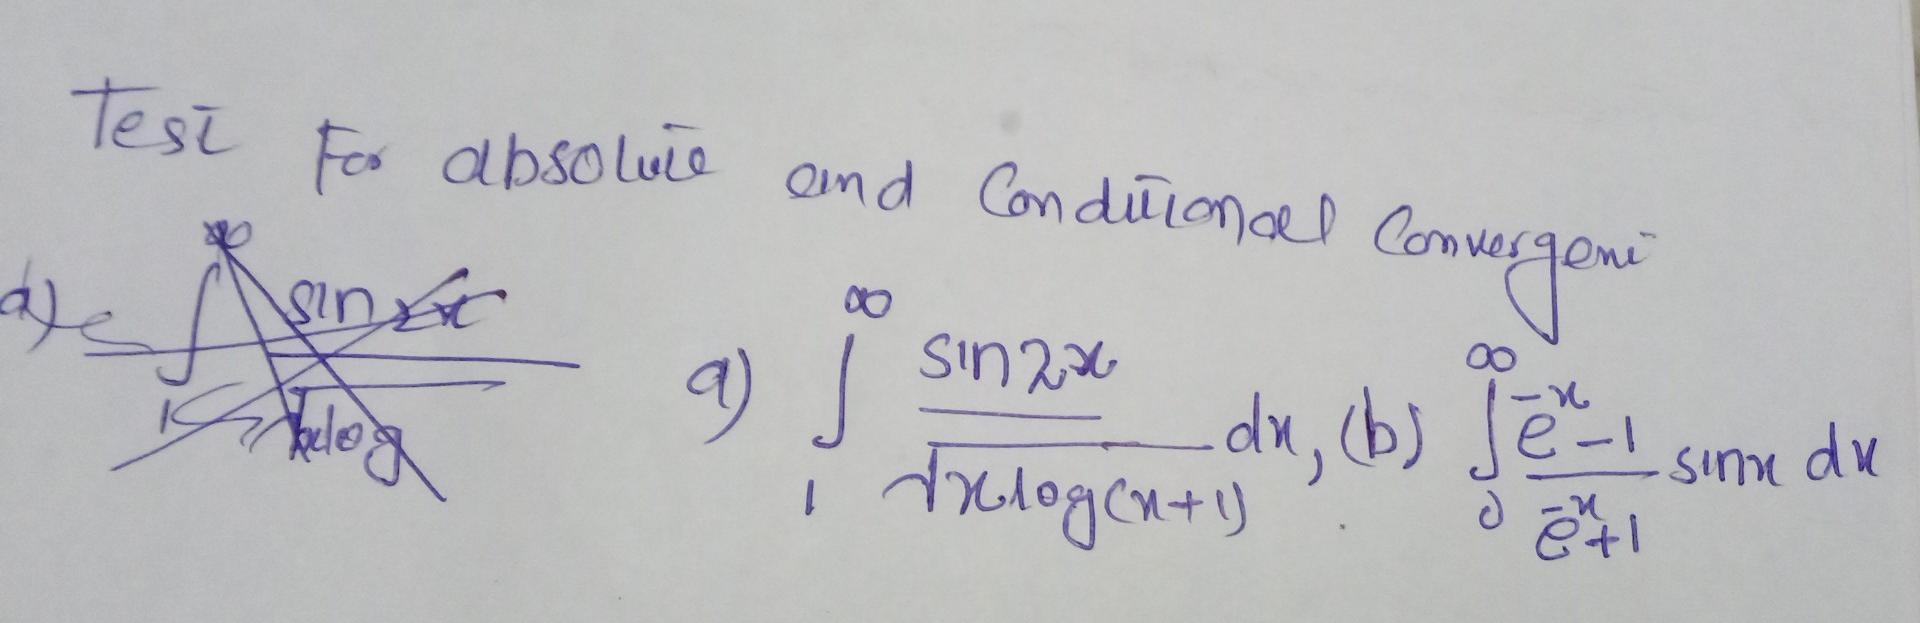 Test For absolute and Conditional Convergent
a) ∫₁^∞ sin2x / √(x log(x+1)) dx, (b) ∫₀^∞ (e⁻ˣ-1)/(e⁻ˣ+1) sinx dx